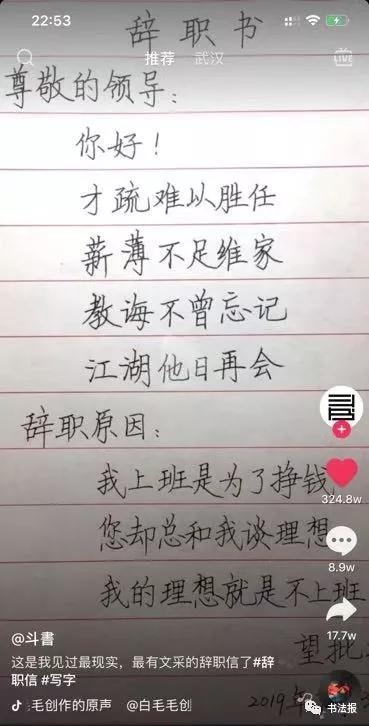 22:53
辞职书
推荐 武汉
LIVE
尊敬的领导:
你好!
才疏难以胜任
薪薄不足维家
教诲不曾忘记
江湖他日再会
辞职原因:
我上班是为了挣钱
您却总和我谈理想
我的理想就是不上班
324.8w
8.9w
17.7w
望批
@斗書
这是我见过最现实,最有文采的辞职信了#辞
职信 #写字
2019年
毛创作的原声 @白毛毛创
书法报